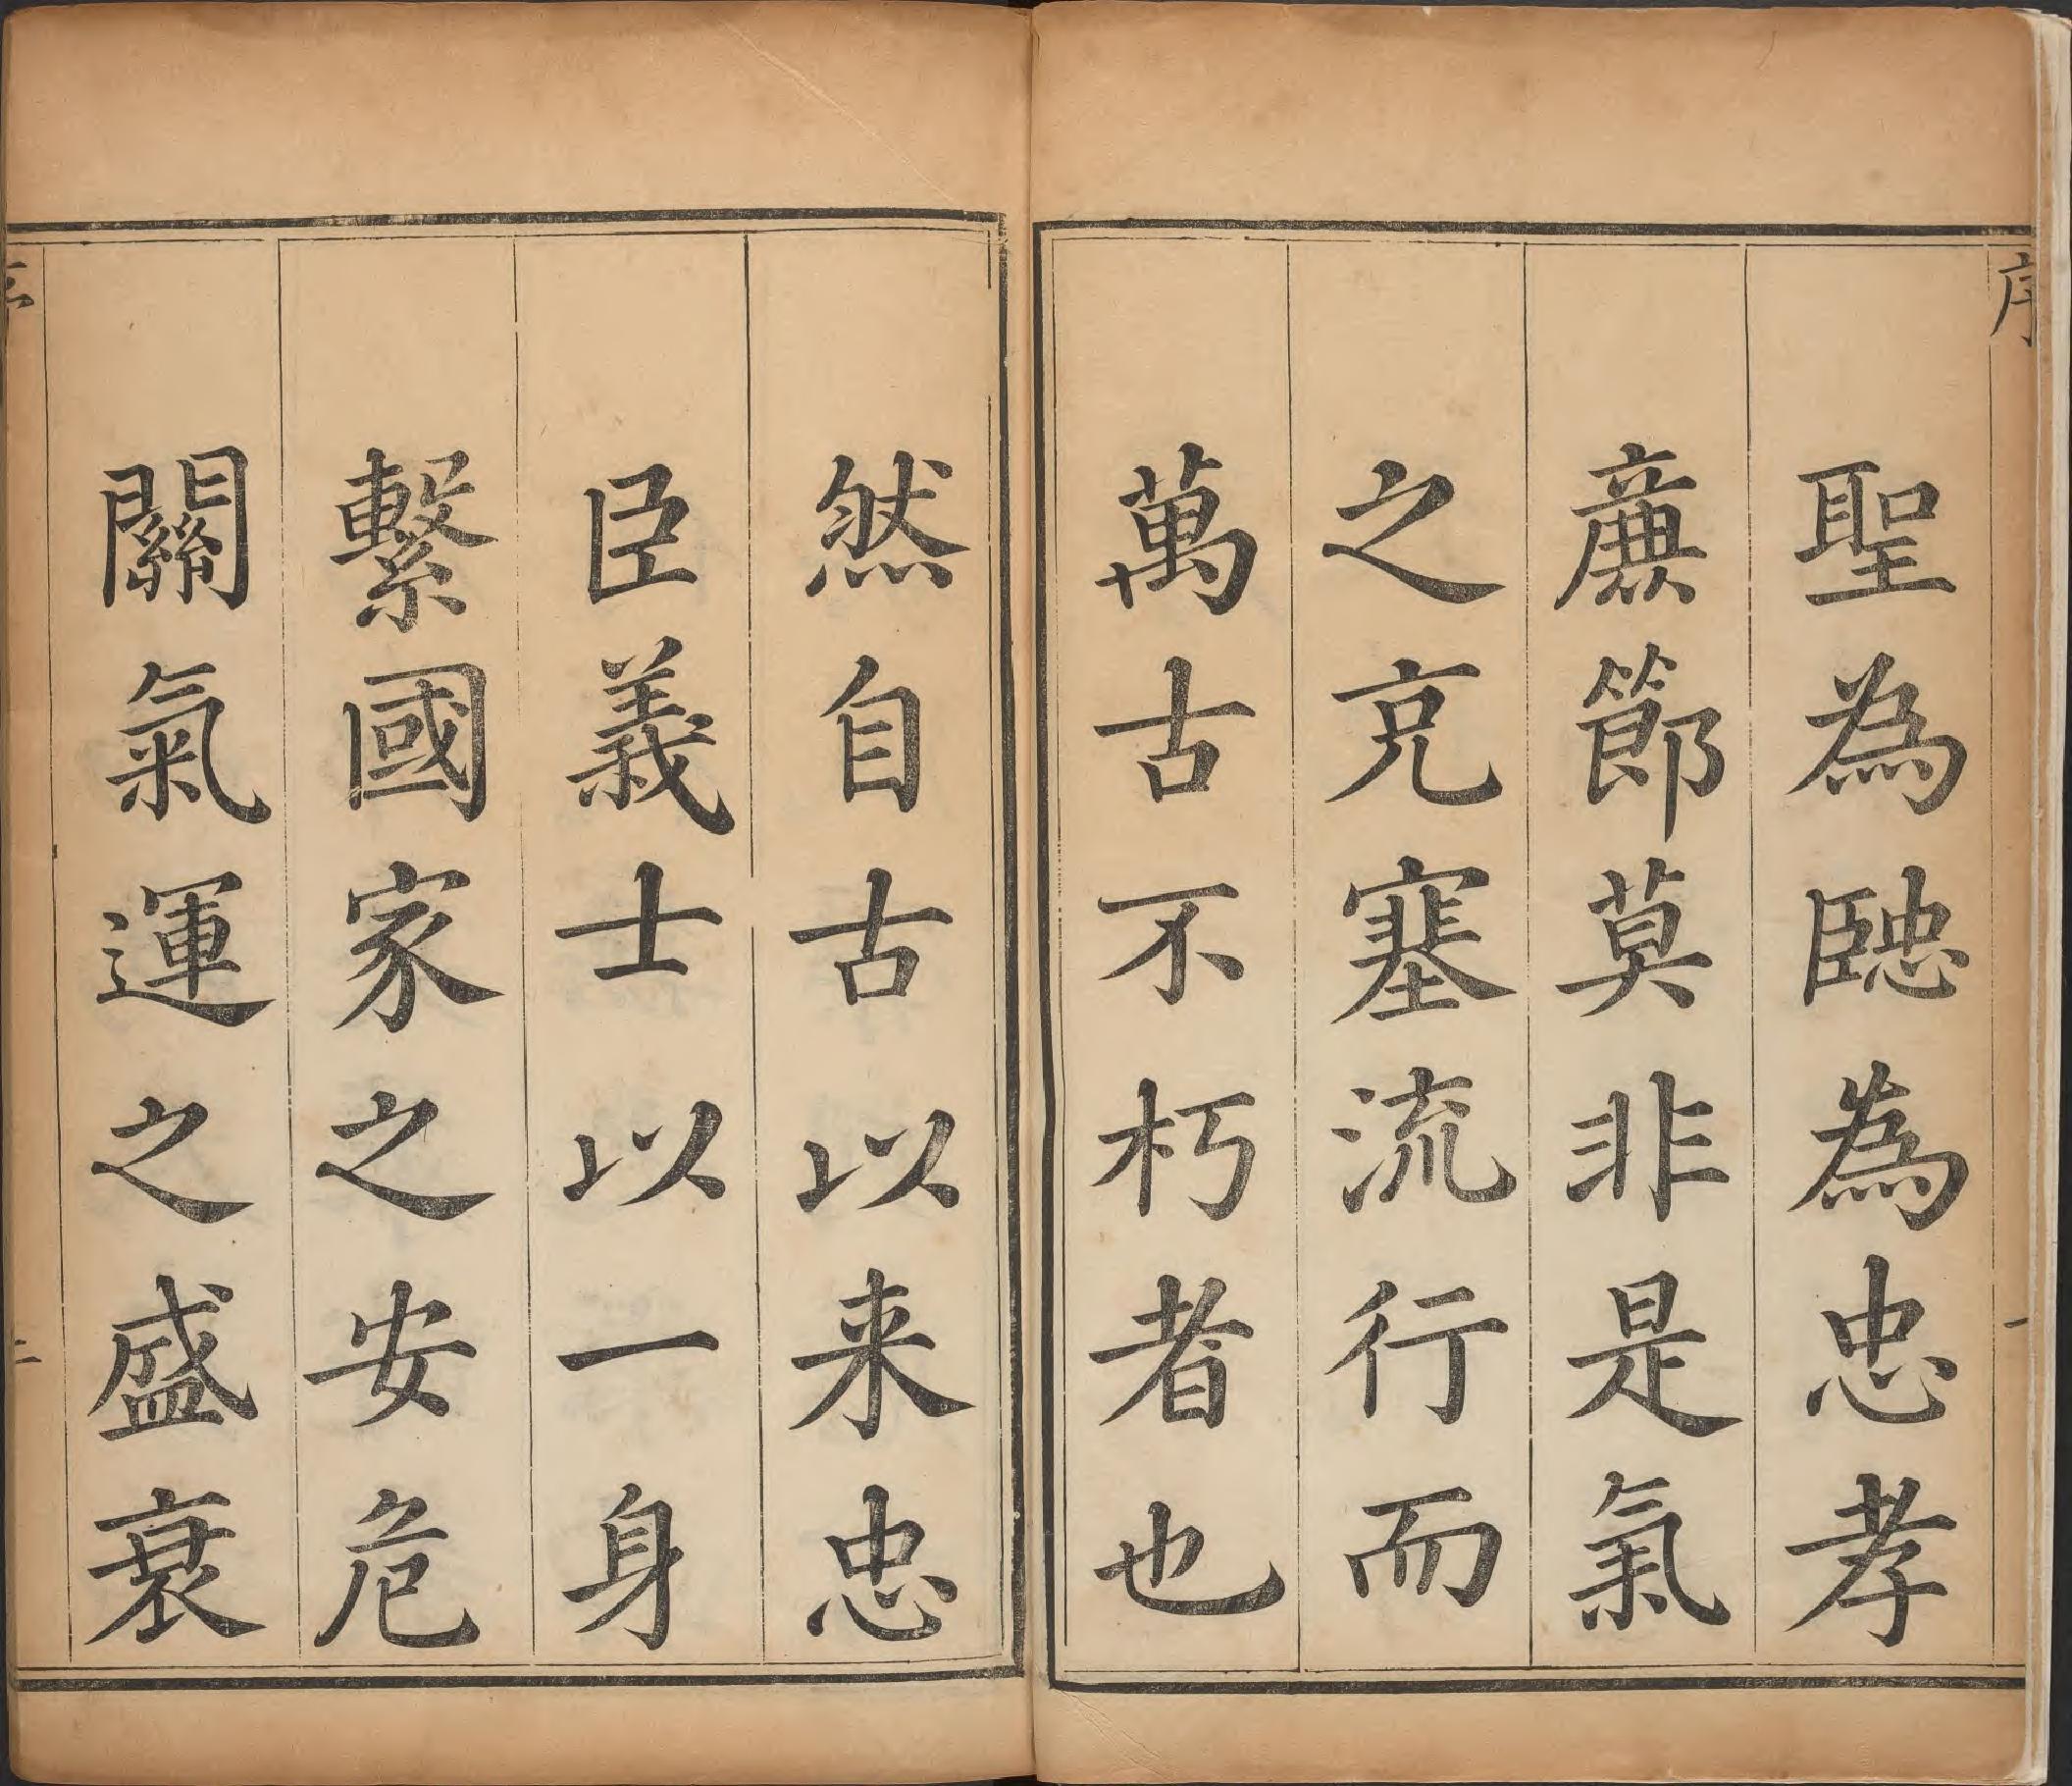 序
一
聖為賢為忠孝
廉節莫非是氣
之充塞流行而
萬古不朽者也
然自古以来忠
臣義士以一身
繫國家之安危
關氣運之盛衰
二